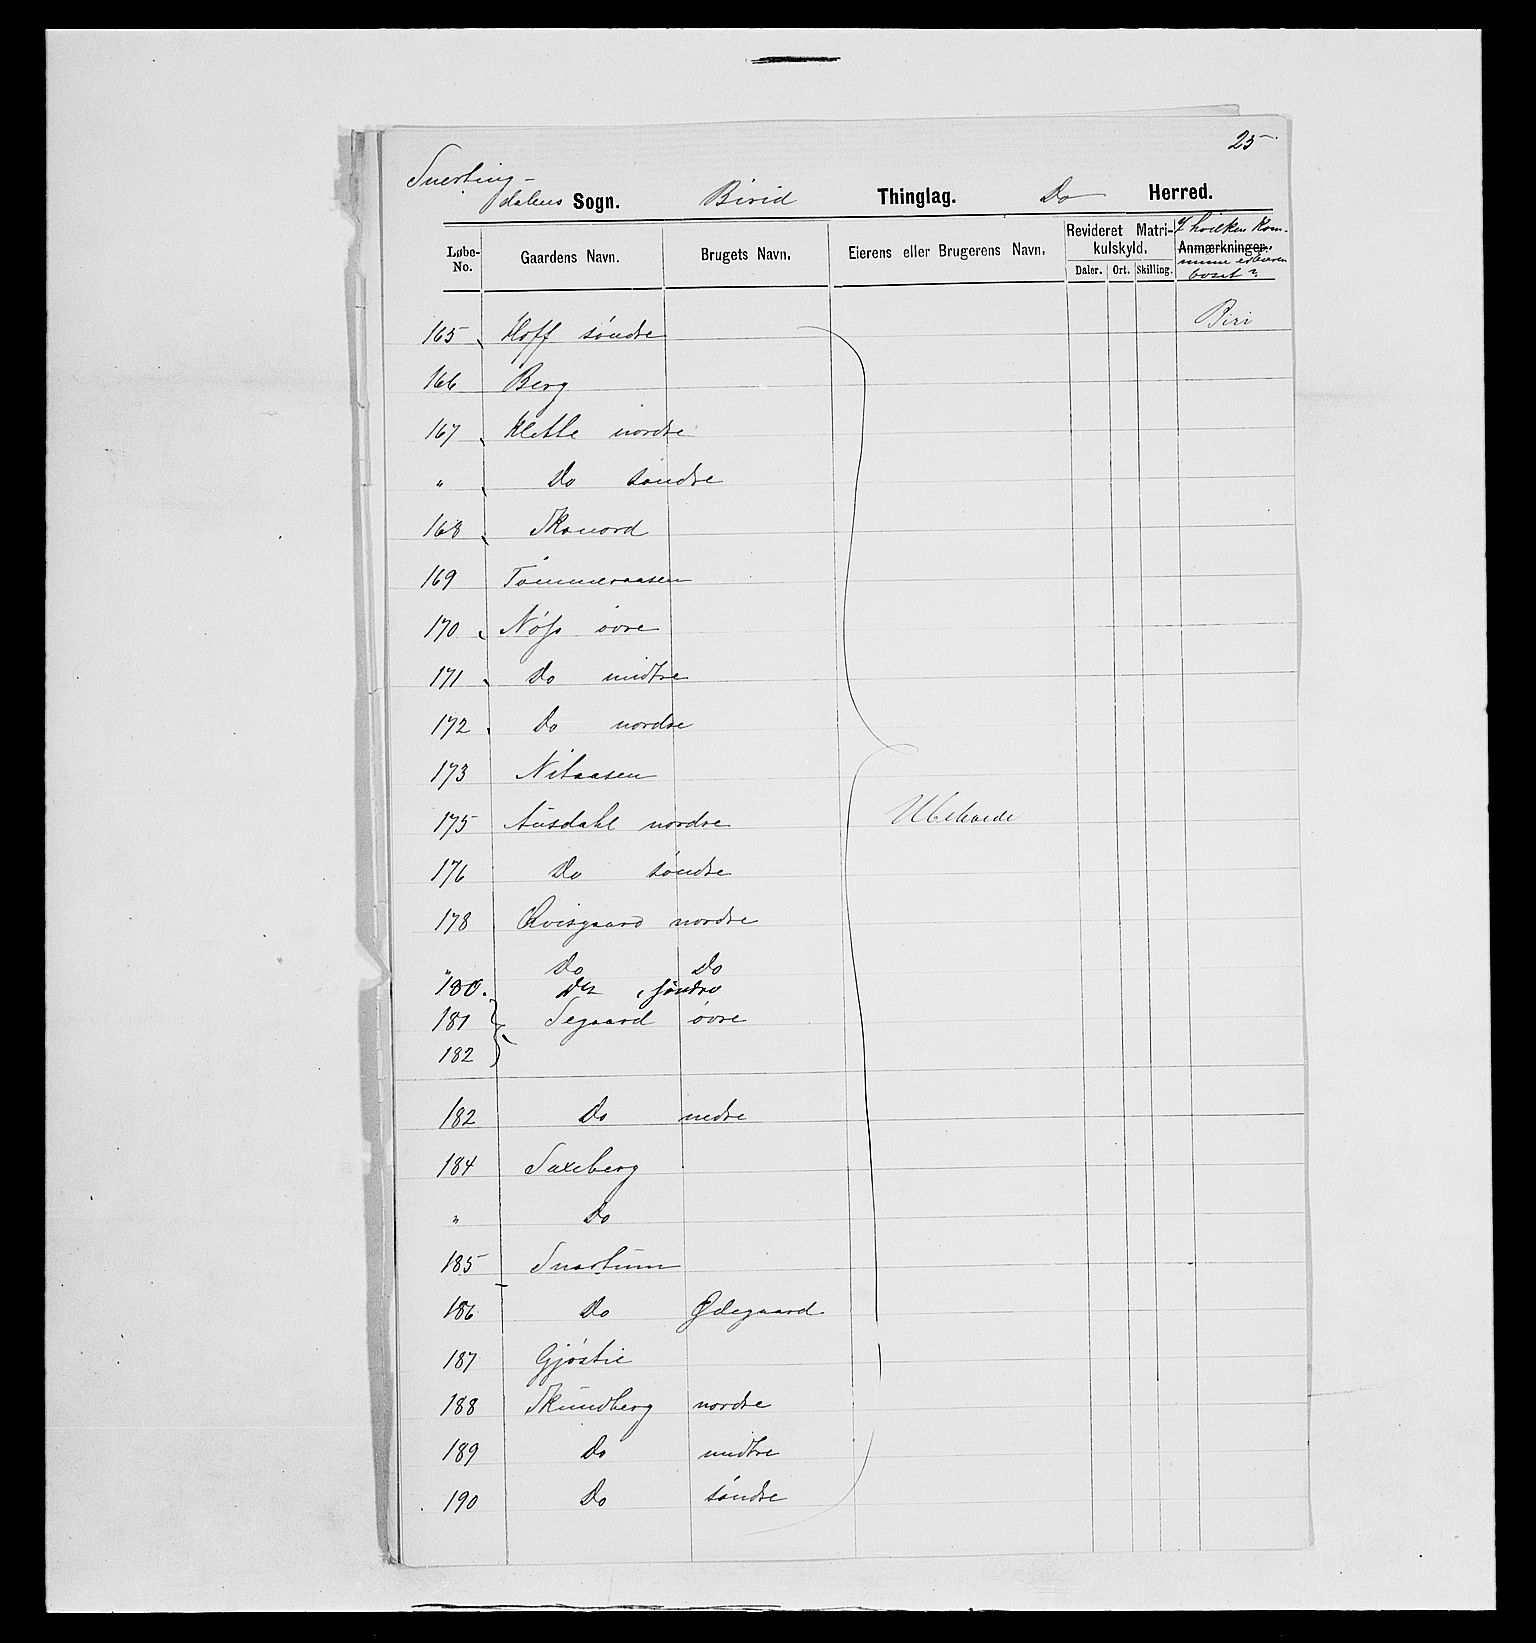 25
Snerting-
dalens Sogn. Birid Thinglag. Do Herred.
Løbe-No. Gaardens Navn. Brugets Navn. Eierens eller Brugerens Navn. Revideret Matri-kulskyld. Daler. Ort. Skilling. Anmærkninger.
I hvilken Kom-
mune er Eieren
bosat?
165 Hoff søndre Biri
166 Berg
167 Klette nordre
" Do søndre
168 Skonord
169 Tømmeraasen
170 Nøss øvre
171 Do midtre
172 Do nordre
173 Nitaasen
175 Ausdahl nordre Ubekvede
176 Do søndre
178 Qvisgaard nordre
" Do Do
180. Do søndre
181 Segaard øvre
182
182 Do nedre
184 Saxeberg
" Do
185 Snartum
186 Do Ødegaard
187 Gjøstie
188 Skundberg nordre
189 Do midtre
190 Do søndre